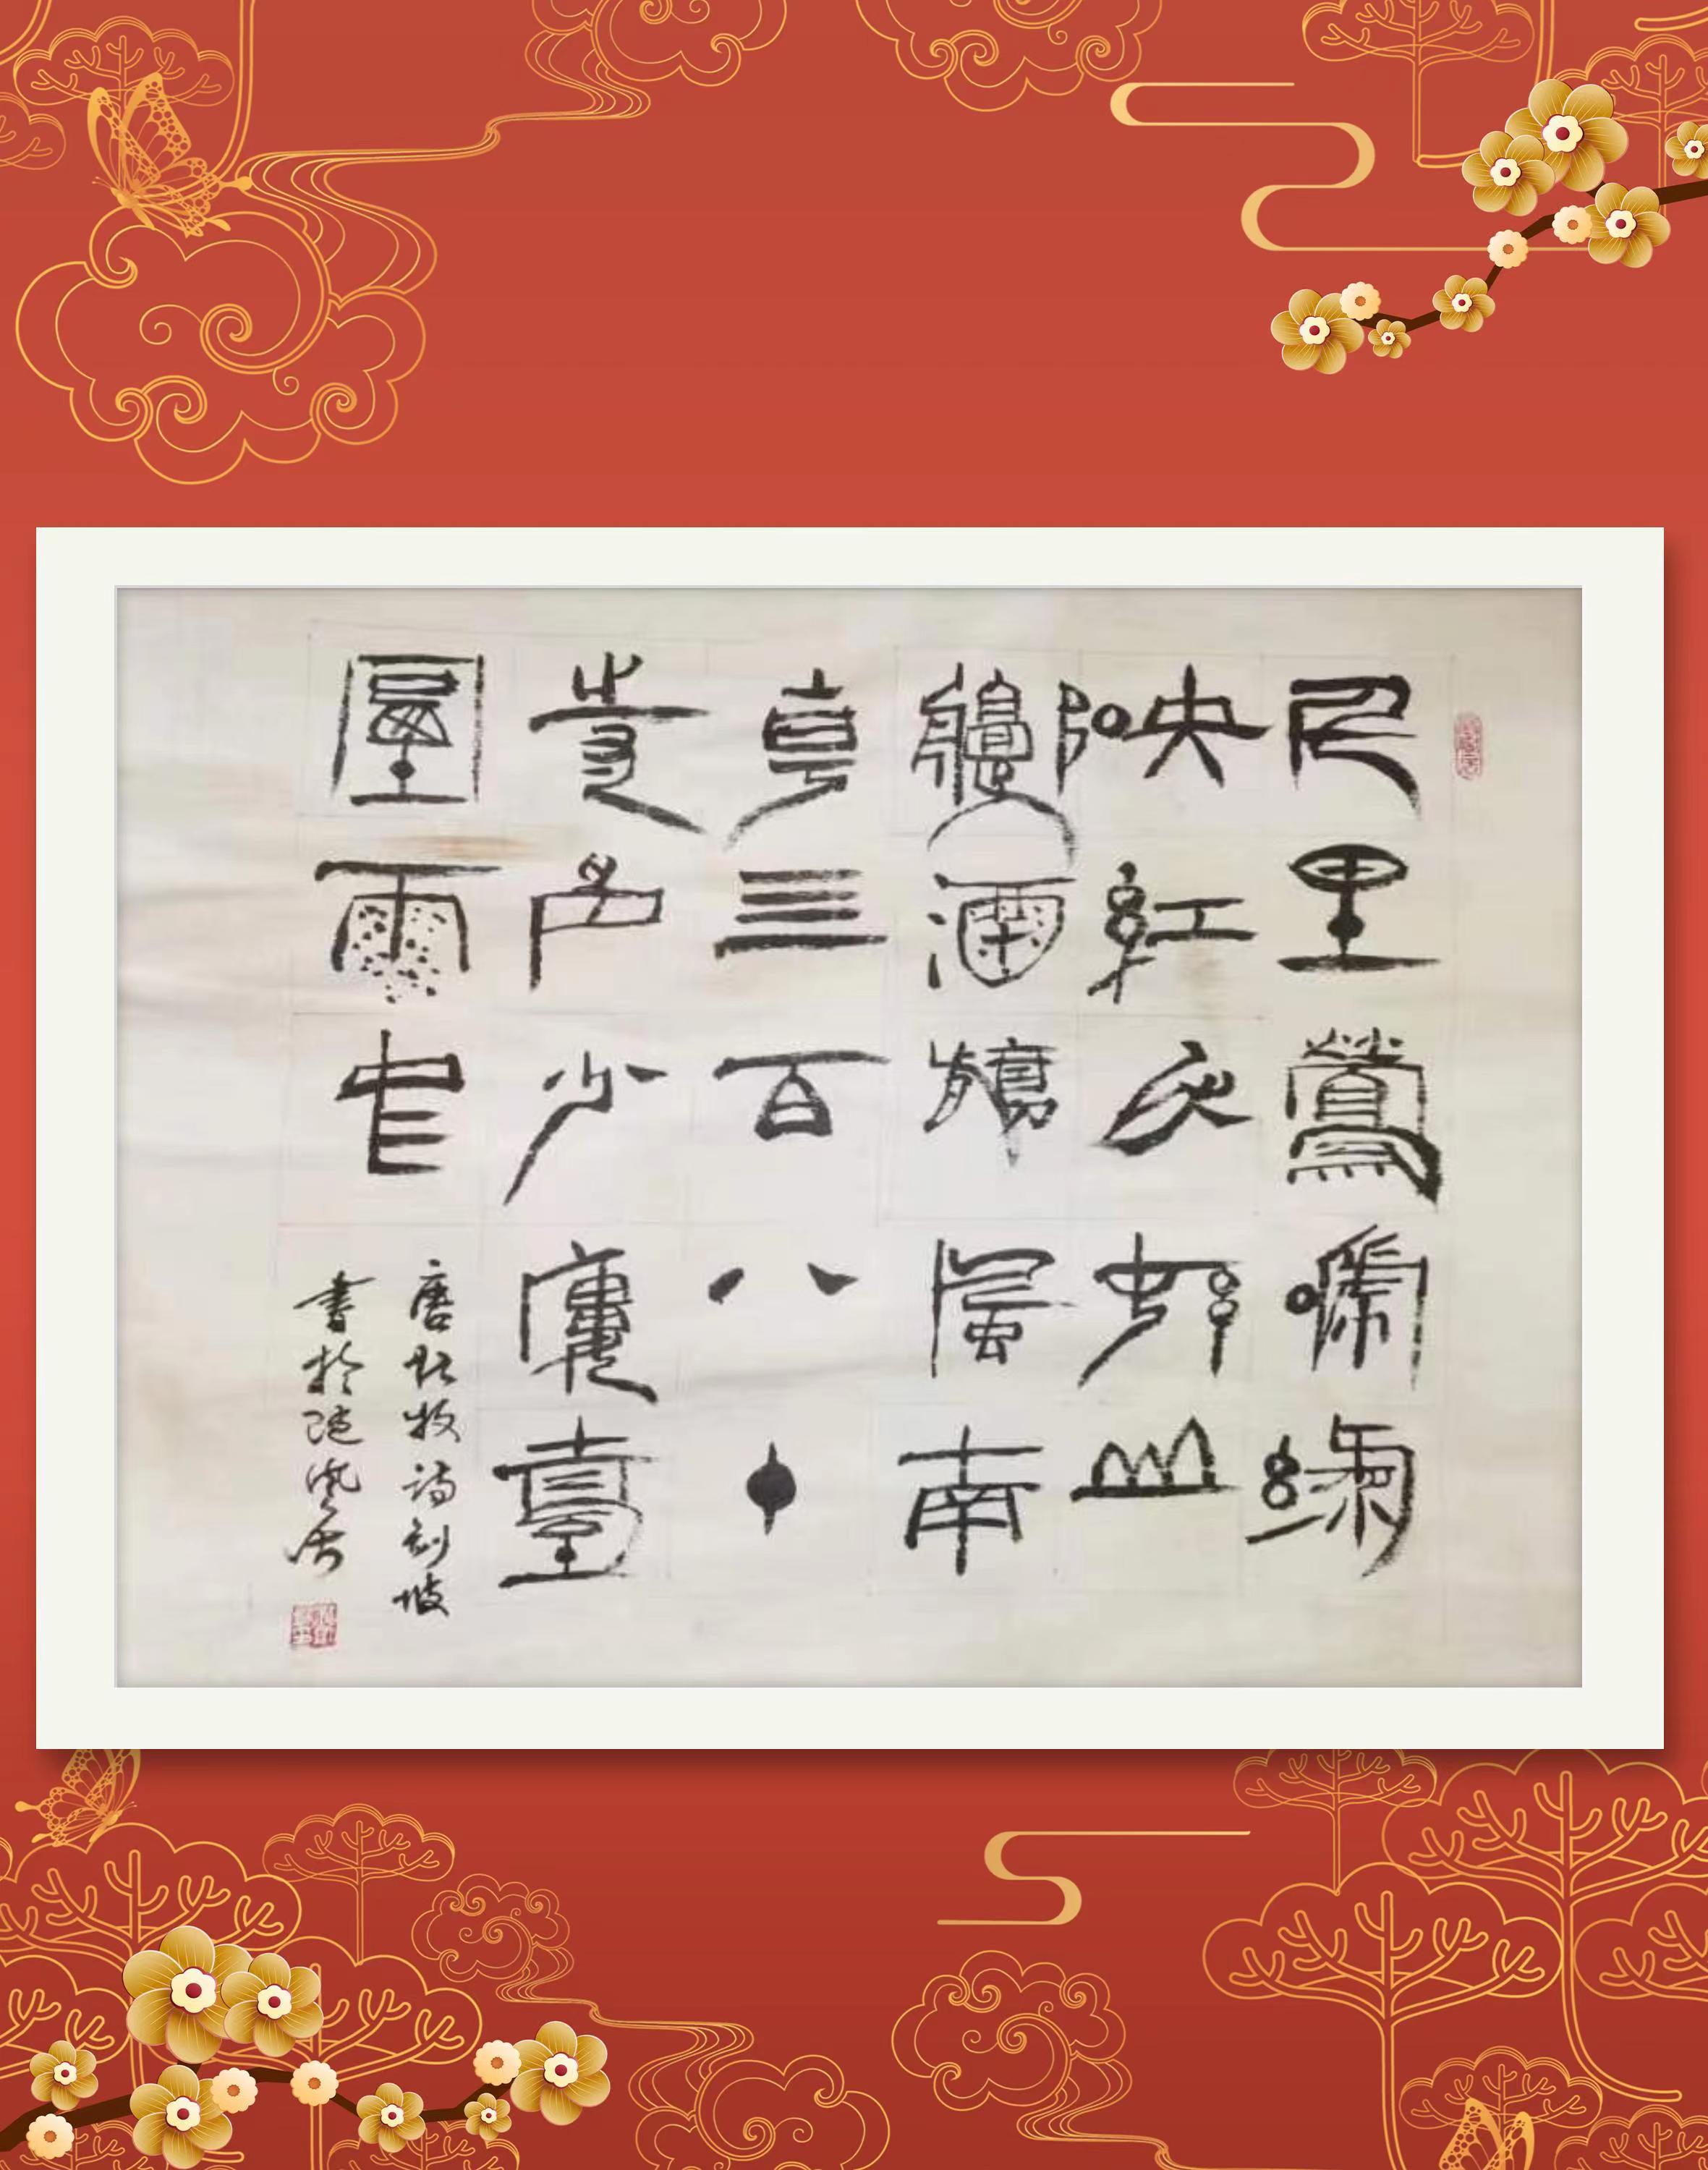 千里鶯啼綠
映紅水村山
郭酒旗風南
朝四百八十
寺多少樓臺
煙雨中
唐杜牧詩劉坡
書於隨風居